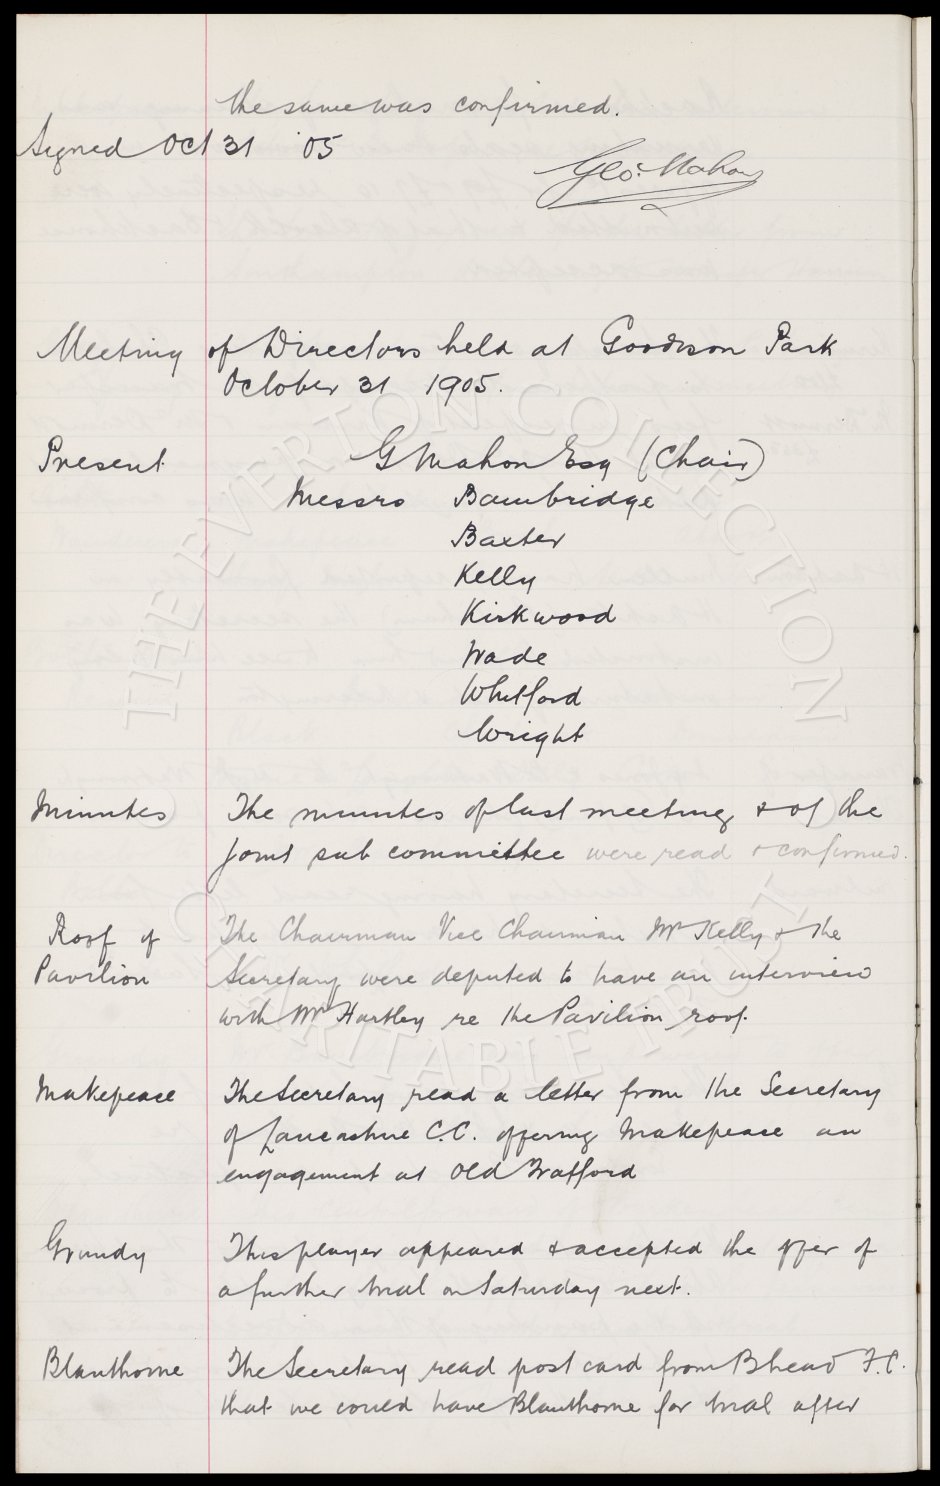 the same was confirmed.
Signed Oct 31 '05
Geo: Mahon
Meeting of Directors held at Goodison Park
October 31 1905.
Present G Mahon Esq (Chair)
Messrs Bainbridge
Baxter
Kelly
Kirkwood
Wade
Whitford
Wright
Minutes The minutes of last meeting & of the
Joint sub committee were read & confirmed.
Roof of The Chairman Vice Chairman Mr Kelly & the
Pavilion Secretary were deputed to have an interview
with Mr Hartley re the Pavilion roof.
Makepeace The Secretary read a letter from the Secretary
of Lancashire C.C. offering Makepeace an
engagement at Old Trafford
Grundy This player appeared & accepted the offer of
a further trial on Saturday next.
Blanthorne The Secretary read post card from Bhead F.C.
that we could have Blanthorne for trial after
THE EVERTON COLLECTION
CHARITABLE TRUST